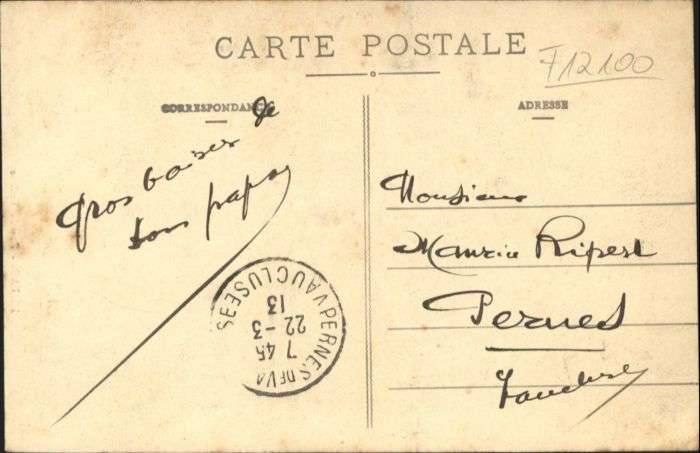 CARTE POSTALE
F12100
CORRESPONDANCE
ADRESSE
Gros baiser de
ton papa
Monsieur
Maurice Ripert
Pernes
Vaucluse
PERNES
VAUCLUSE
7 45
22 - 3
13